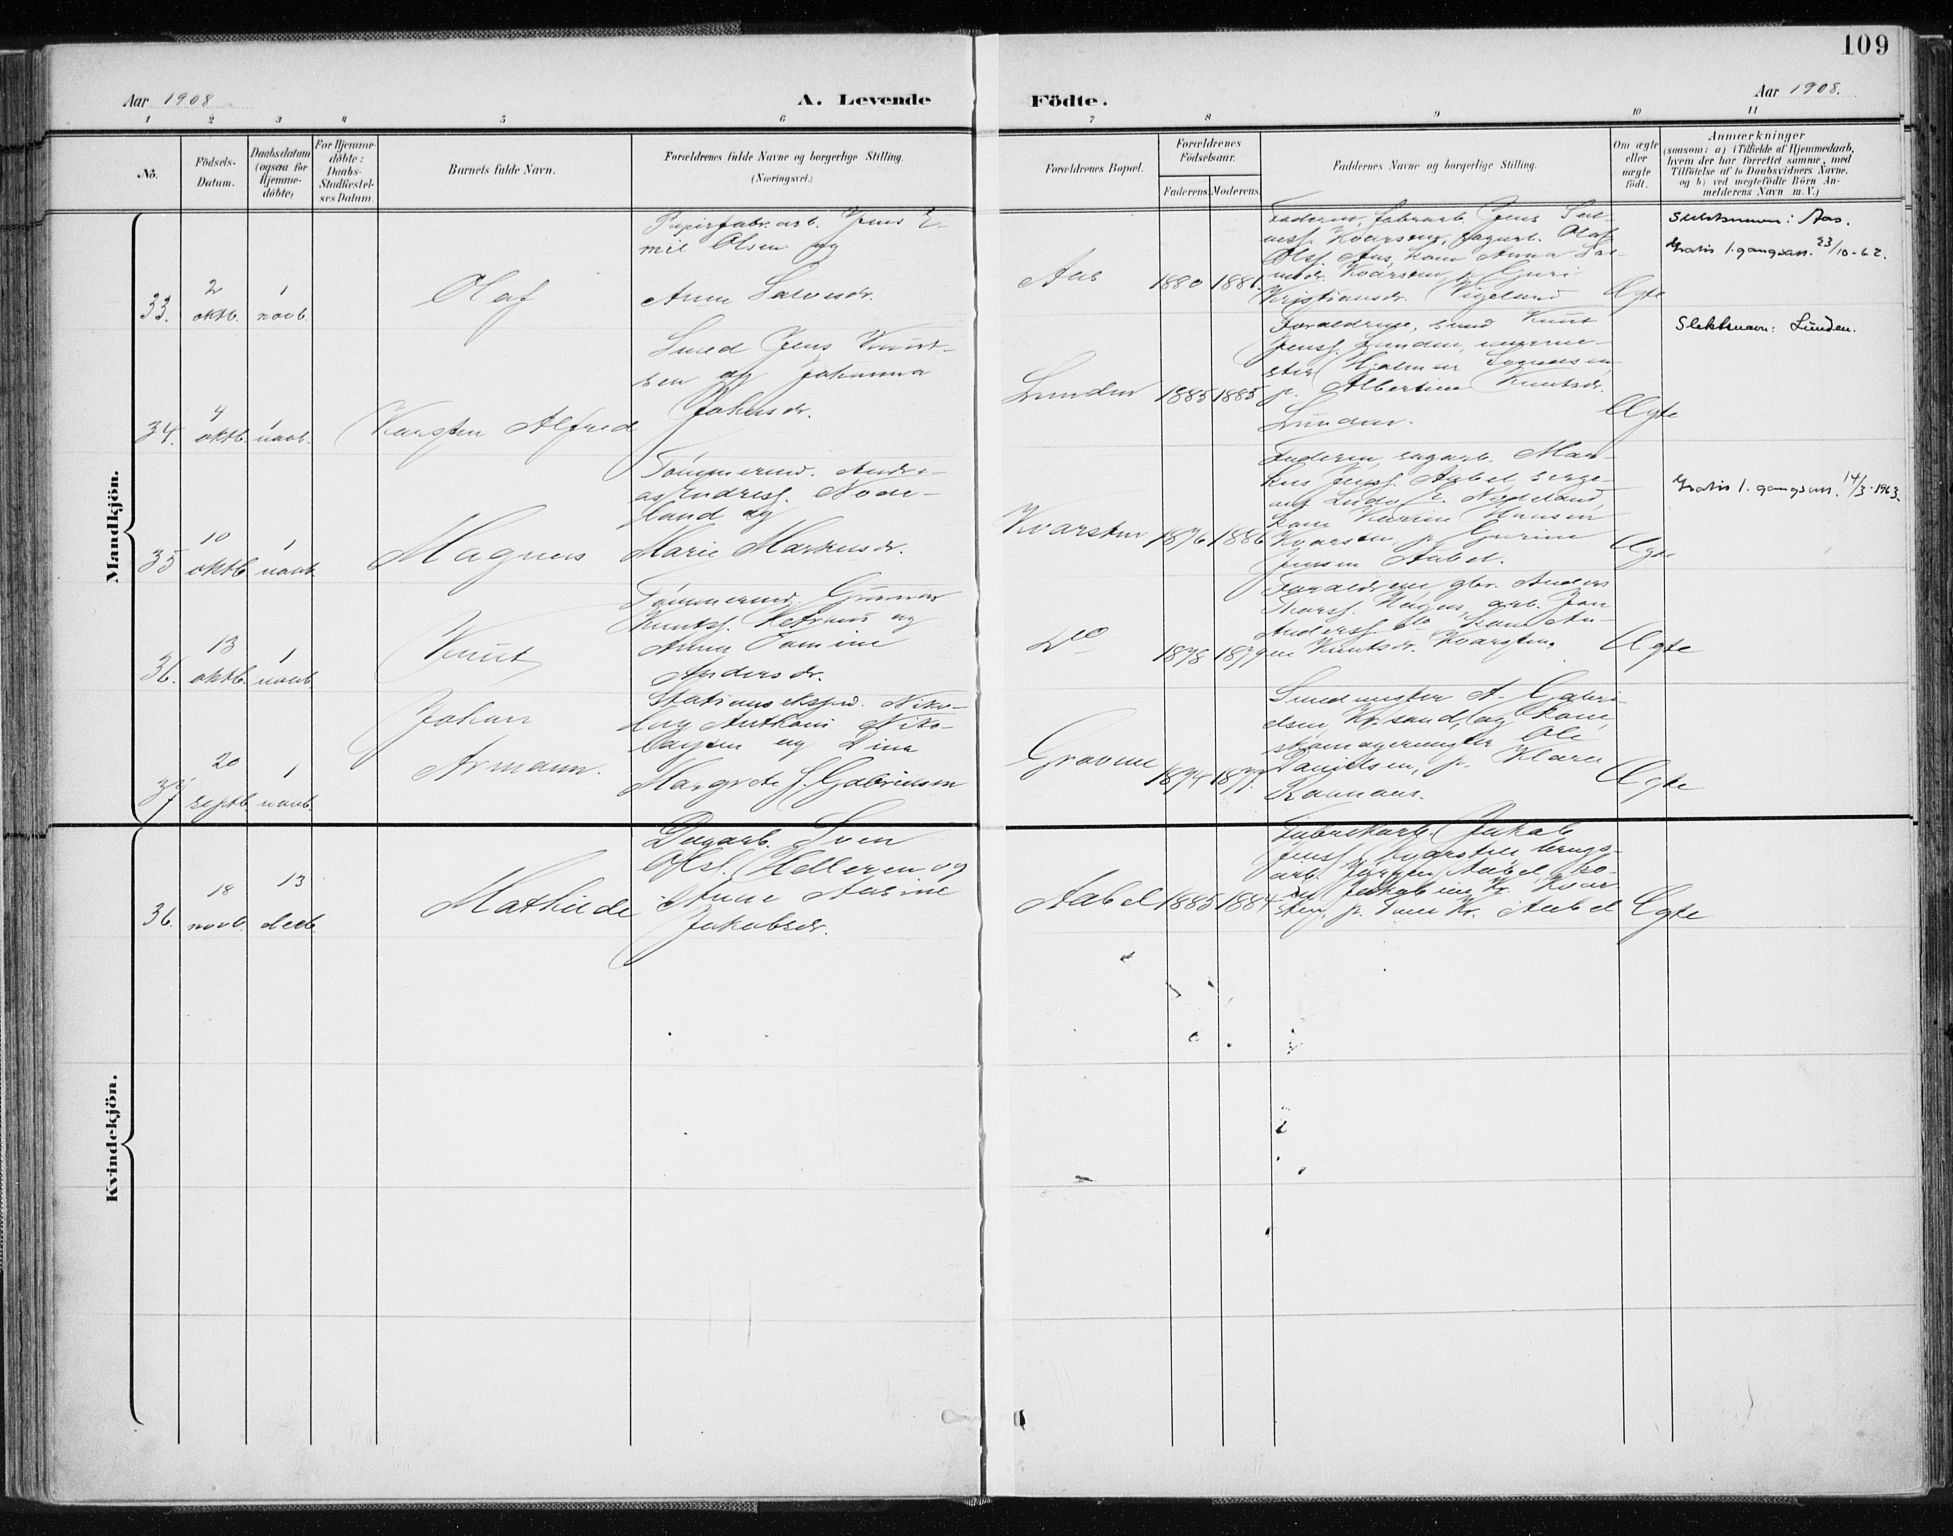 109
Aar 1908
A. Levende
Födte.
Aar 1908.
1 2 3 4 5 6 7 8 9 10 11
No.
Födsels-
Datum.
Daabsdatum
(ogsaa for
Hjemme-
döbte)
For Hjemme-
döbte:
Daabs-
Stadfæstel-
ses Datum.
Barnets fulde Navn.
Forældrenes fulde Navne og borgerlige Stilling.
(Næringsvei.)
Forældrenes Bopæl.
Forældrenes
Födselsaar.
Faderens. Moderens.
Faddernes Navne og borgerlige Stilling.
Om ægte
eller
uægte
födt.
Anmærkninger
(saasom: a) i Tilfælde af Hjemmedaab,
hvem der har forrettet samme, med
Tilföielse af to Daabsvidners Navne,
og b) ved uægtefödte Börn An-
melderens Navn m. V.)
Mandkjön.
33.
2
oktb.
1
novb.
Olaf
Papirfabr.arb. Jens E-
mil Olsen og
Anne Salvesdr.
Aas
1880 1881.
Faderen, fabrarb. Jens
Kvarsten, Olaf
Olsf. Aas, kone Anna
Kvarsten, p. Guri
Kristiansdr. Vigeland
Ægte
Slektsnavn: Aas.
Gratis 1. gangsatt. 23/10-62.
34.
4
oktb.
1
novb.
Karsten Alfred
Smed Jens Knut-
sen og Johanna
Johnsdr.
Lunden
1885 1885
Forældrene, smed Knut
Jensf. Lunden,
Hjalmar
p. Albertine Knutsdr.
Lunden.
Ægte
Slektsnavn: Lunden.
35
10
oktb.
1
novb.
Magnus
Tömmermd. Andre-
as Endresf. Node-
land og
Marie Markusdr.
Kvarsten
1876 1886
Faderen, sagarb. Mar-
kus Jensf. Aabel,
kone Karine Hansen
Kvarsten, p. Gurine
Jensen Aabel.
Ægte
Gratis 1. gangsatt. 14/3-1963.
36.
13
oktb.
1
novb.
Knut
Tömmermd. Gunnar
Knutsf. og
Anne Tomine
Andersdr.
Do
1878 1879
Forældrene, gbr. Anders
Hagen, arb. Jon
Andersf. do, kone An-
ne Knutsdr. Kvarsten.
Ægte
37
20
septb.
1
novb.
Johan
Armann.
Stationseksped. Niko-
lay Anthoni Niko-
laysen og Dina
Margrete J. Gabrielsen
Graven
1874 1877.
Smedmester A. Gabri-
elsen, Kr.sand, og kone,
skomagermester Ole
Danielsen, p. Klara
Ægte
Kvindekjön.
36.
18
novb.
13
decb.
Mathilde
Dagarb. Sven
Olsf. Helleren og
Anne Aasine
Jakobsdr.
Aabel
1885 1884
Fabrikarb. Jakob
Jensf. Kvarsten, brugs-
arb. Jörgen Aabel, ko-
ne Jakobine Kr. Kvar
sten, p. Tane Kr. Aabel
Ægte